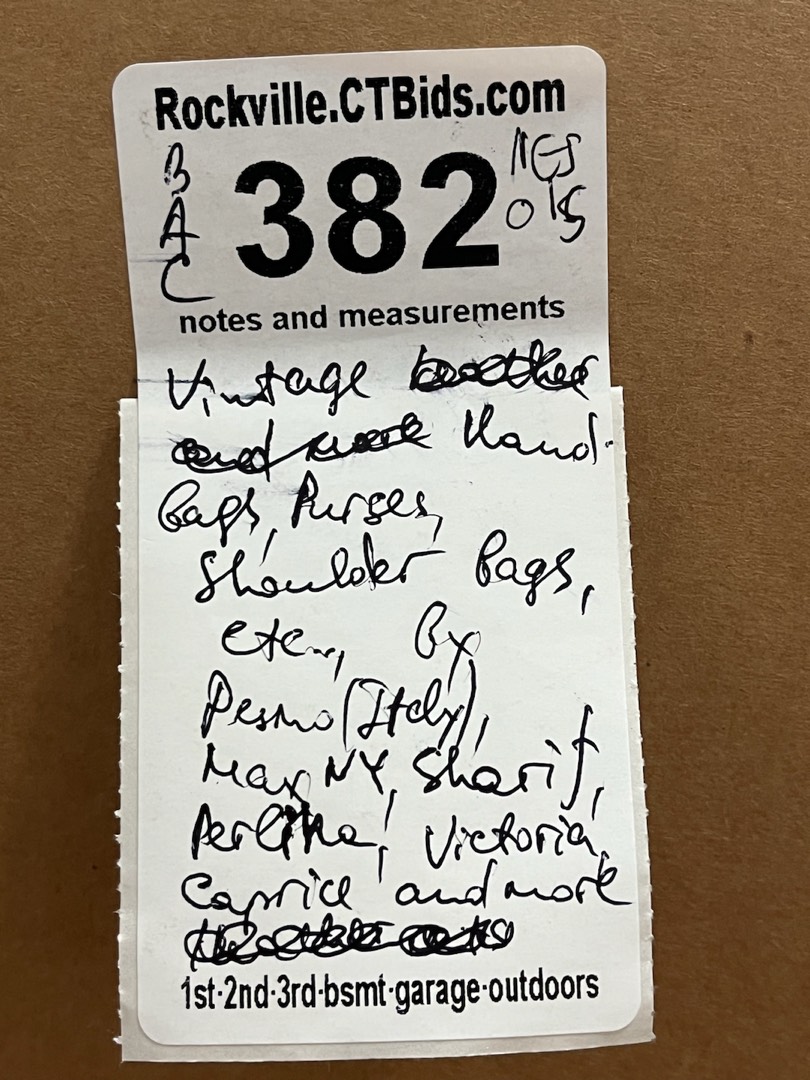 Rockville.CTBids.com
B
A
C
382
notes and measurements
Vintage
Hand-
bags, Purses,
Shoulder bags,
etc., by
Pesmo (Italy),
Max NY, Sharif,
Perlina, Victoria,
Caprice and more
1st·2nd·3rd·bsmt·garage·outdoors